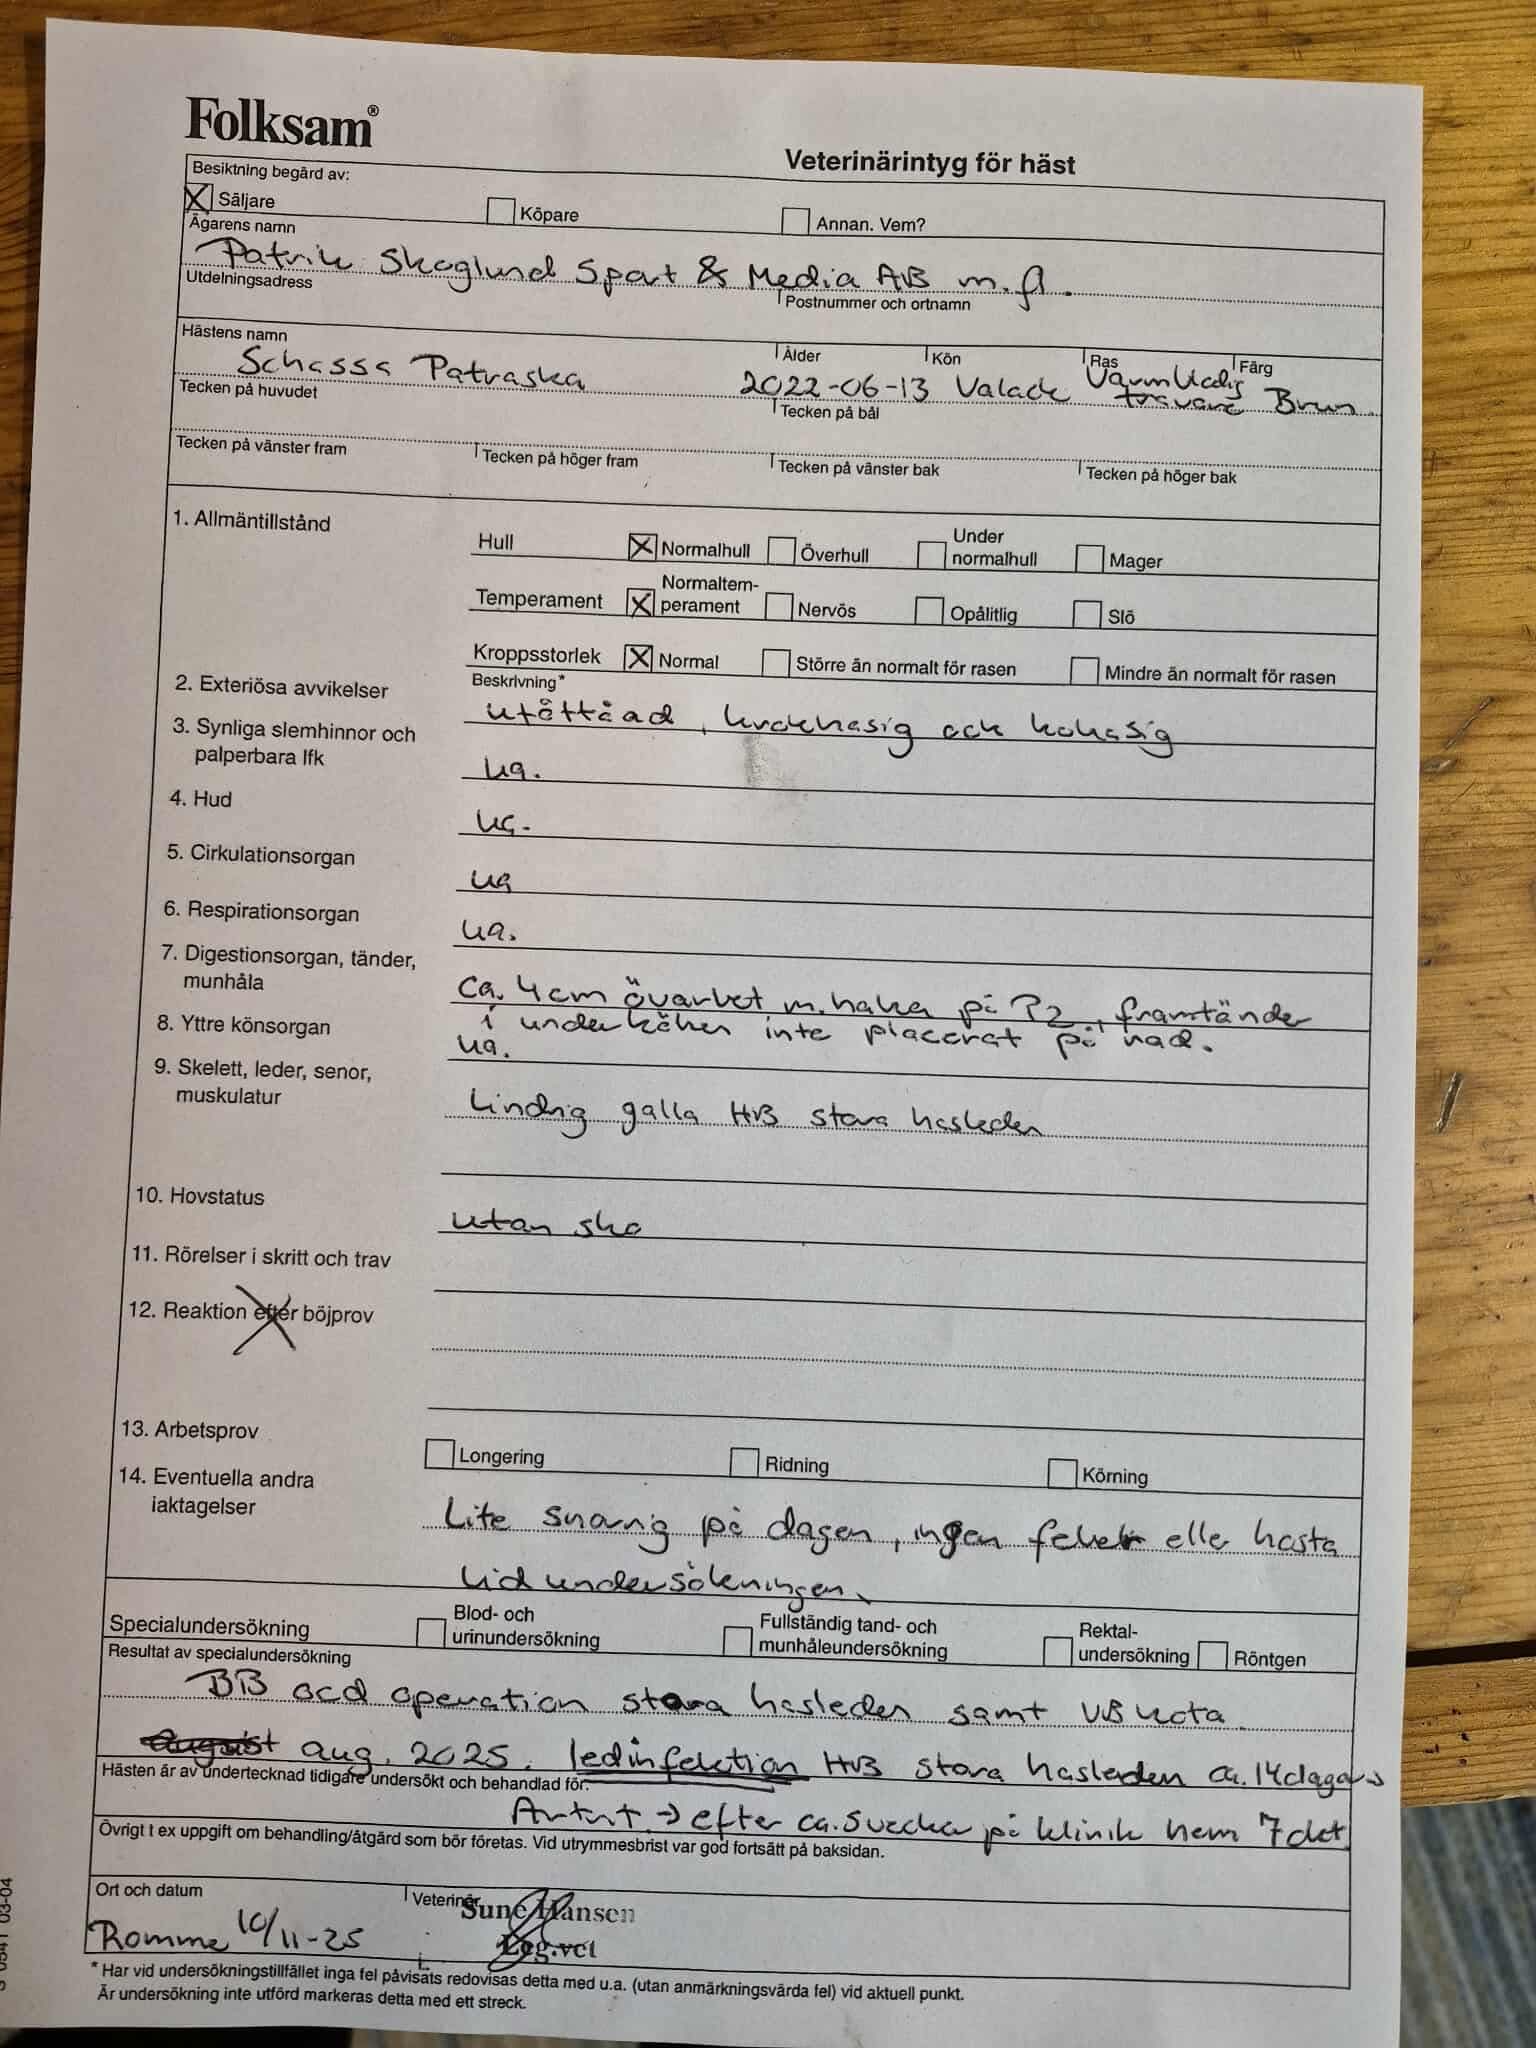 Folksam®
Veterinärintyg för häst
Besiktning begärd av:
X Säljare Köpare Annan. Vem?
Ägarens namn
Patrik Skoglund Sport & Media AB m.fl.
Utdelningsadress Postnummer och ortnamn
Hästens namn Ålder Kön Ras Färg
Schassa Patraska 2022-06-13 Valack Varmblodig travare Brun
Tecken på huvudet Tecken på bål
Tecken på vänster fram Tecken på höger fram Tecken på vänster bak Tecken på höger bak
1. Allmäntillstånd
Hull X Normalhull Överhull Under normalhull Mager
Temperament X Normaltem-perament Nervös Opålitlig Slö
Kroppsstorlek X Normal Större än normalt för rasen Mindre än normalt för rasen
2. Exteriösa avvikelser Beskrivning*
utåttåad, krokhasig och kohasig
3. Synliga slemhinnor och
palperbara lfk ua.
4. Hud ua.
5. Cirkulationsorgan ua
6. Respirationsorgan ua.
7. Digestionsorgan, tänder,
munhåla ca. 4cm överbet m. hake på P2, framtänder
i underkäken inte placerat på rad.
8. Yttre könsorgan ua.
9. Skelett, leder, senor,
muskulatur Lindrig galla HB stora hasleden
10. Hovstatus utan sko
11. Rörelser i skritt och trav
12. Reaktion efter böjprov
13. Arbetsprov Longering Ridning Körning
14. Eventuella andra
iaktagelser Lite snorig på dagen, ingen feber elle hosta
vid undersökningen.
Specialundersökning Blod- och urinundersökning Fullständig tand- och munhåleundersökning Rektal-undersökning Röntgen
Resultat av specialundersökning
BB ocd operation stora hasleden samt VB kota
august aug. 2025. ledinfektion HB stora hasleden ca. 14dagar
Hästen är av undertecknad tidigare undersökt och behandlad för:
→ efter ca. 5 veckor på klinik hem 7 okt
Övrigt t ex uppgift om behandling/åtgärd som bör företas. Vid utrymmesbrist var god fortsätt på baksidan.
Ort och datum Veterinär
Romme 10/11-25 Sune Hansen
Leg.vet
* Har vid undersökningstillfället inga fel påvisats redovisas detta med u.a. (utan anmärkningsvärda fel) vid aktuell punkt.
Är undersökning inte utförd markeras detta med ett streck.
S 0541 03-04